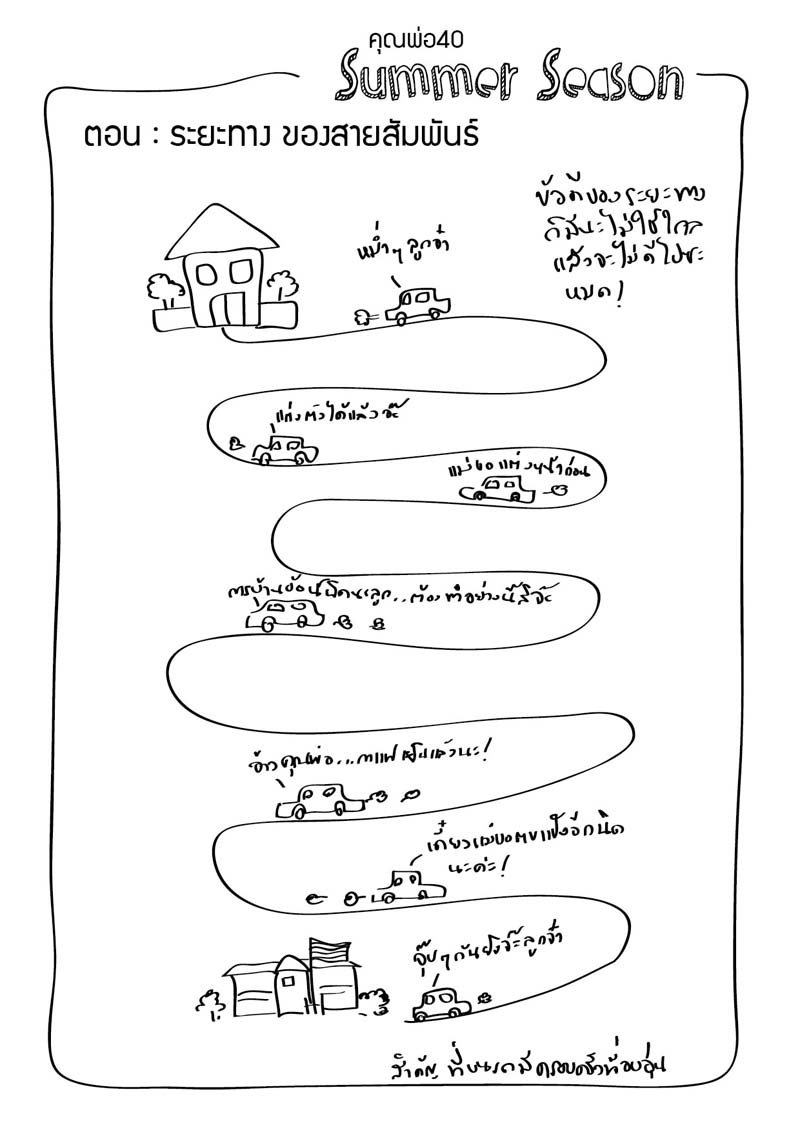 คุณพ่อ40
Summer Season
ตอน : ระยะทาง ของสายสัมพันธ์
ข้อดีของระยะทาง
ก็มีนะไม่ใช่ไกล
แล้วจะไม่ดีไปซะ
หมด!
หม่ำๆ ลูกจ๋า
แต่งตัวได้แล้วจ๊ะ
แม่ขอแต่งหน้าก่อน
การบ้านข้อนี้นะลูก..ต้องทำอย่างนี้สิจ๊ะ
อ้าวคุณพ่อ...กาแฟเย็นแล้วนะ!
เดี๋ยวแม่ขอตบแป้งอีกนิด
นะค่ะ!
จุ๊บๆ กันยังจ๊ะลูกจ๋า
สำคัญ ที่ครอบครัวที่อบอุ่น